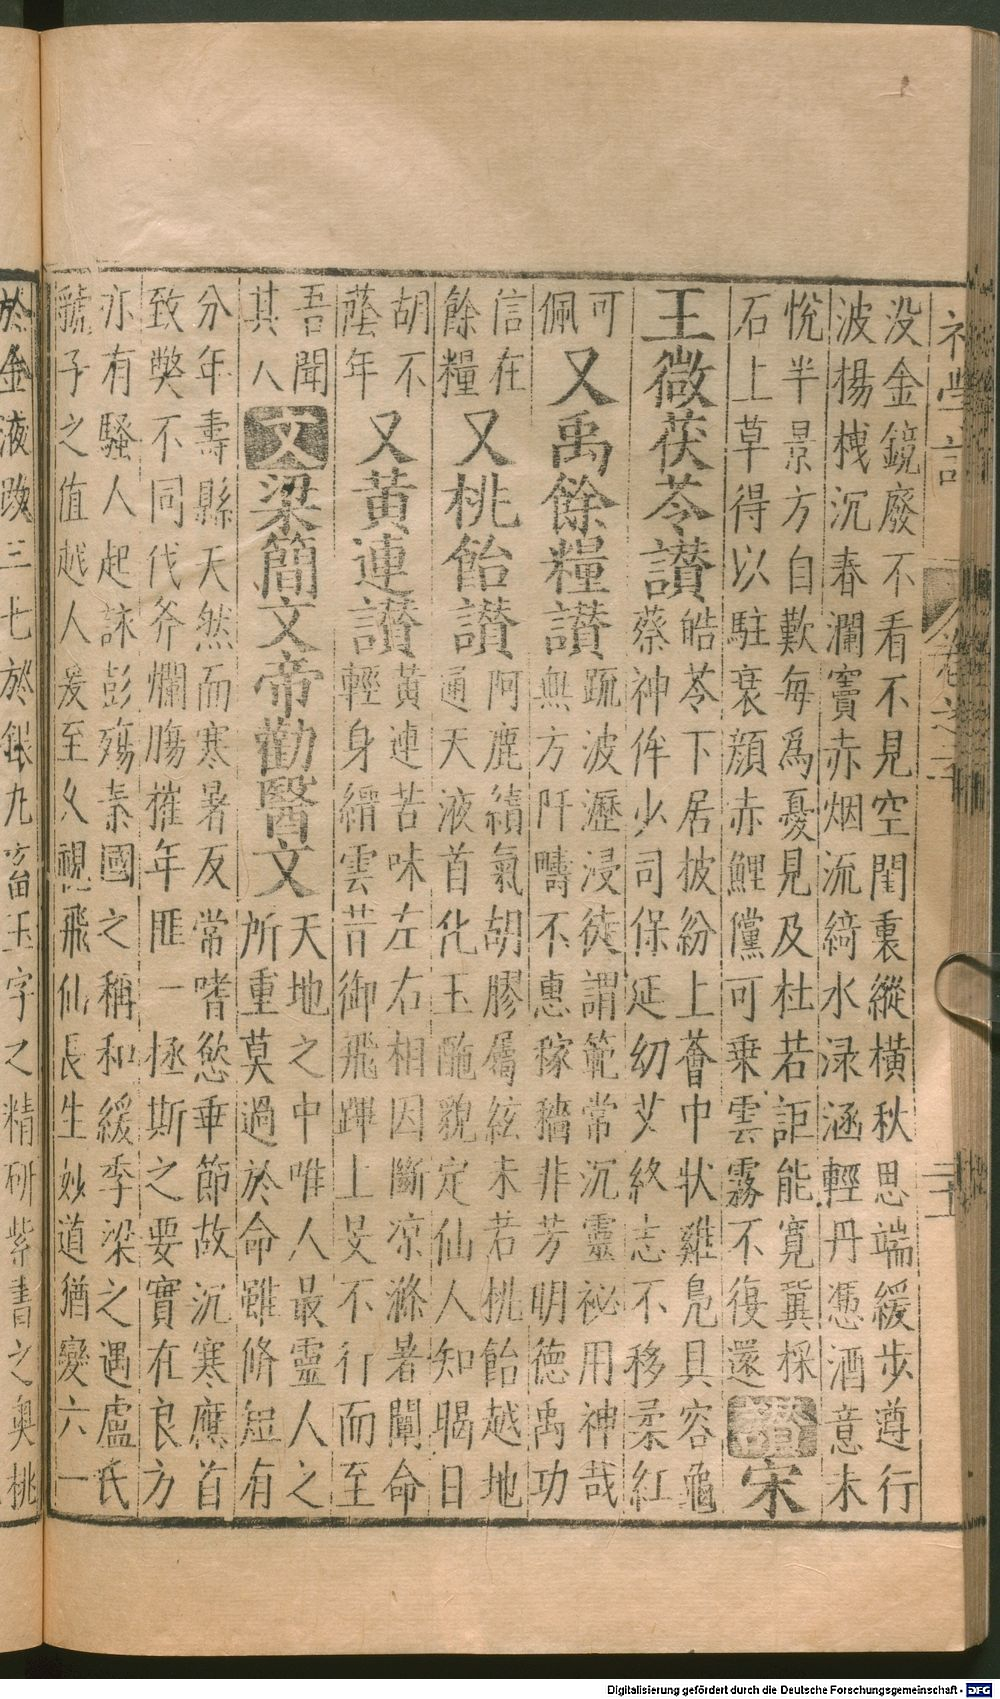 没金鏡廢不看不見空閨裏縱橫秋思端緩步遵行
波揚栧沉春瀾竇赤烟流綺水渌涵輕丹憑酒意未
悅半景方自歎每爲憂見及杜若詎能寛冀採
石上草得以駐衰顏赤鯉儻可乗雲霧不復還 讚 宋
王微茯苓讃
皓苓下居披紛上薈中状雞鳧具容龜
蔡神侔少司保延㓜艾終志不移柔紅
可
佩
又禹餘糧讃
疏波瀝浸徒謂範常沉靈祕用神哉
無方阡疇不惠稼穡非芳明德禹功
信在
餘糧
又桃飴讃
阿鹿續氣胡膠屬絃未若桃飴越地
通天液首化玉酏貌定仙人知暍日
胡不
蔭年
又黄連讃
黄連苦味左右相因斷凉滌暑闡命
輕身縉雲昔御飛蹕上旻不行而至
吾聞
其人
文 梁簡文帝勸醫文
天地之中唯人最靈人之
所重莫過於命雖脩短有
分年壽縣天然而寒暑反常嗜慾乖節故沉寒應首
致斃不同伐斧爛膓摧年匪一拯斯之要實在良方
亦有騷人起詠彭殤秦國之稱和緩季梁之遇盧氏
虢子之值越人爰至久視飛仙長生妙道猶變六一
於金液改三七於銀丸畜玉字之精研紫書之奥桃
卷之
二十
Digitalisierung gefördert durch die Deutsche Forschungsgemeinschaft - DFG